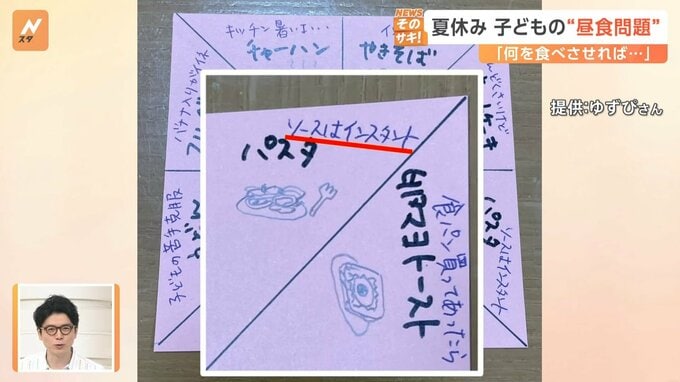 Nスタ
NEWS
そのサキ!
夏休み 子どもの“昼食問題”
「何を食べさせれば…」
提供:ゆずぴさん
キッチン暑いよ…
チャーハン
やきそば
バナナ入りがイイネ
子どもの苦手克服
ソースはインスタント
パスタ
食パン買ってあったら
ソースはインスタント
パスタ